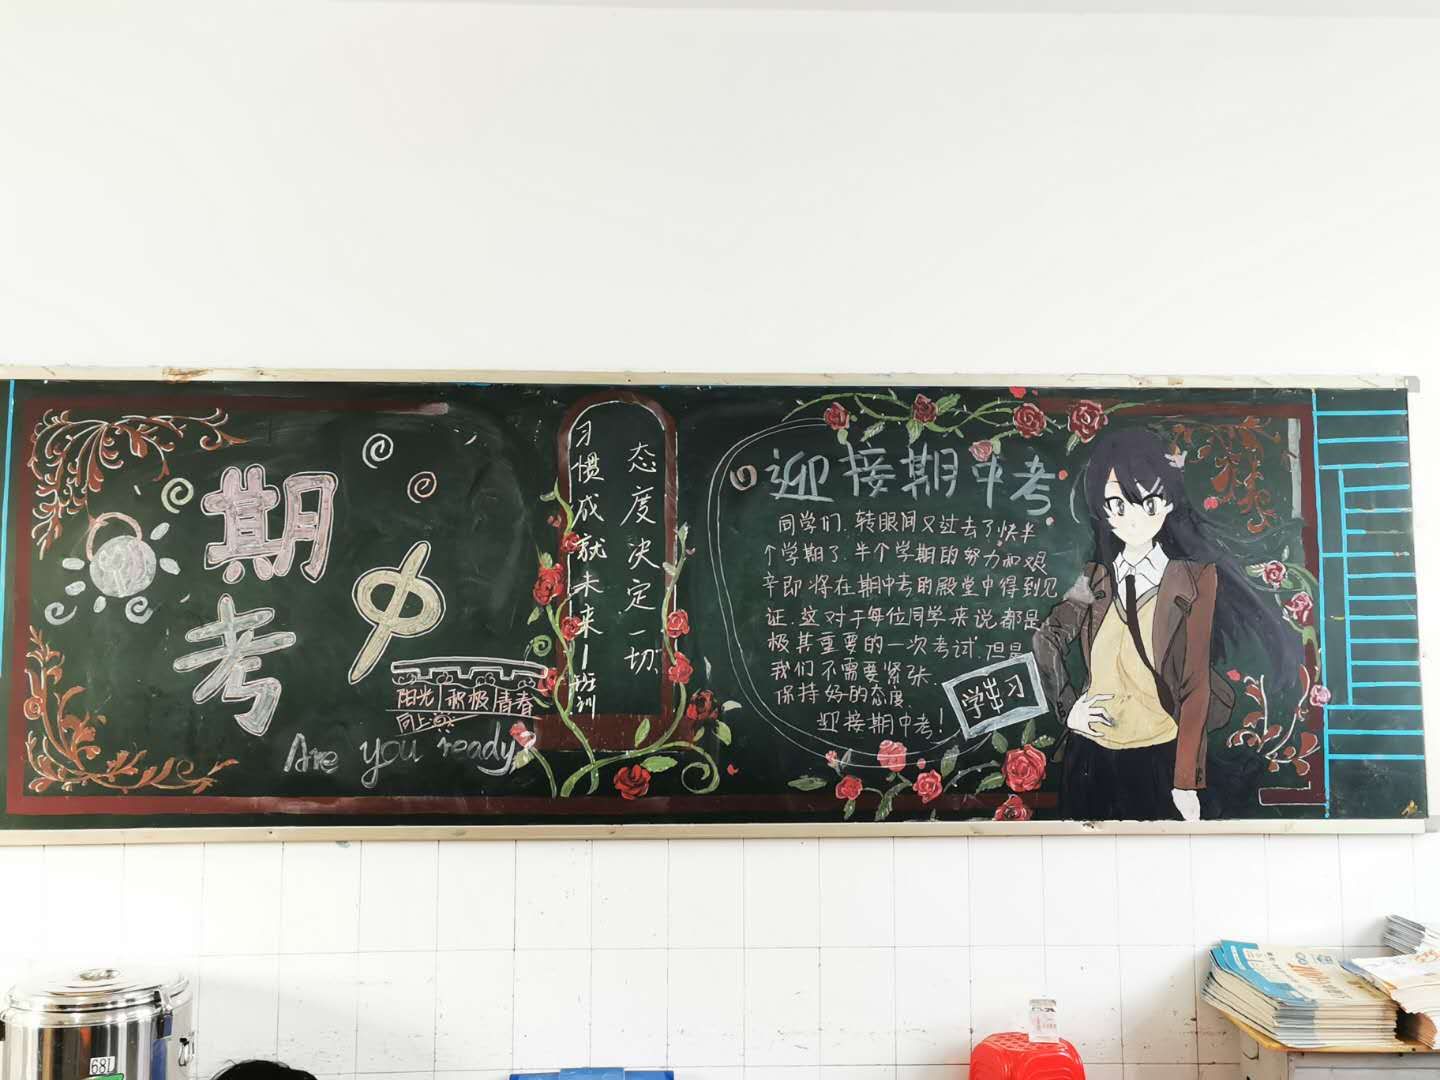 期中
考
阳光 积极 青春
向上
Are you ready
态度决定一切
习惯成就未来
班训
迎接期中考
同学们.转眼间又过去了快半
个学期了.半个学期的努力和艰
辛即将在期中考的殿堂中得到见
证.这对于每位同学来说都是
极其重要的一次考试.但是
我们不需要紧张.
保持好的态度
迎接期中考!
学习
681